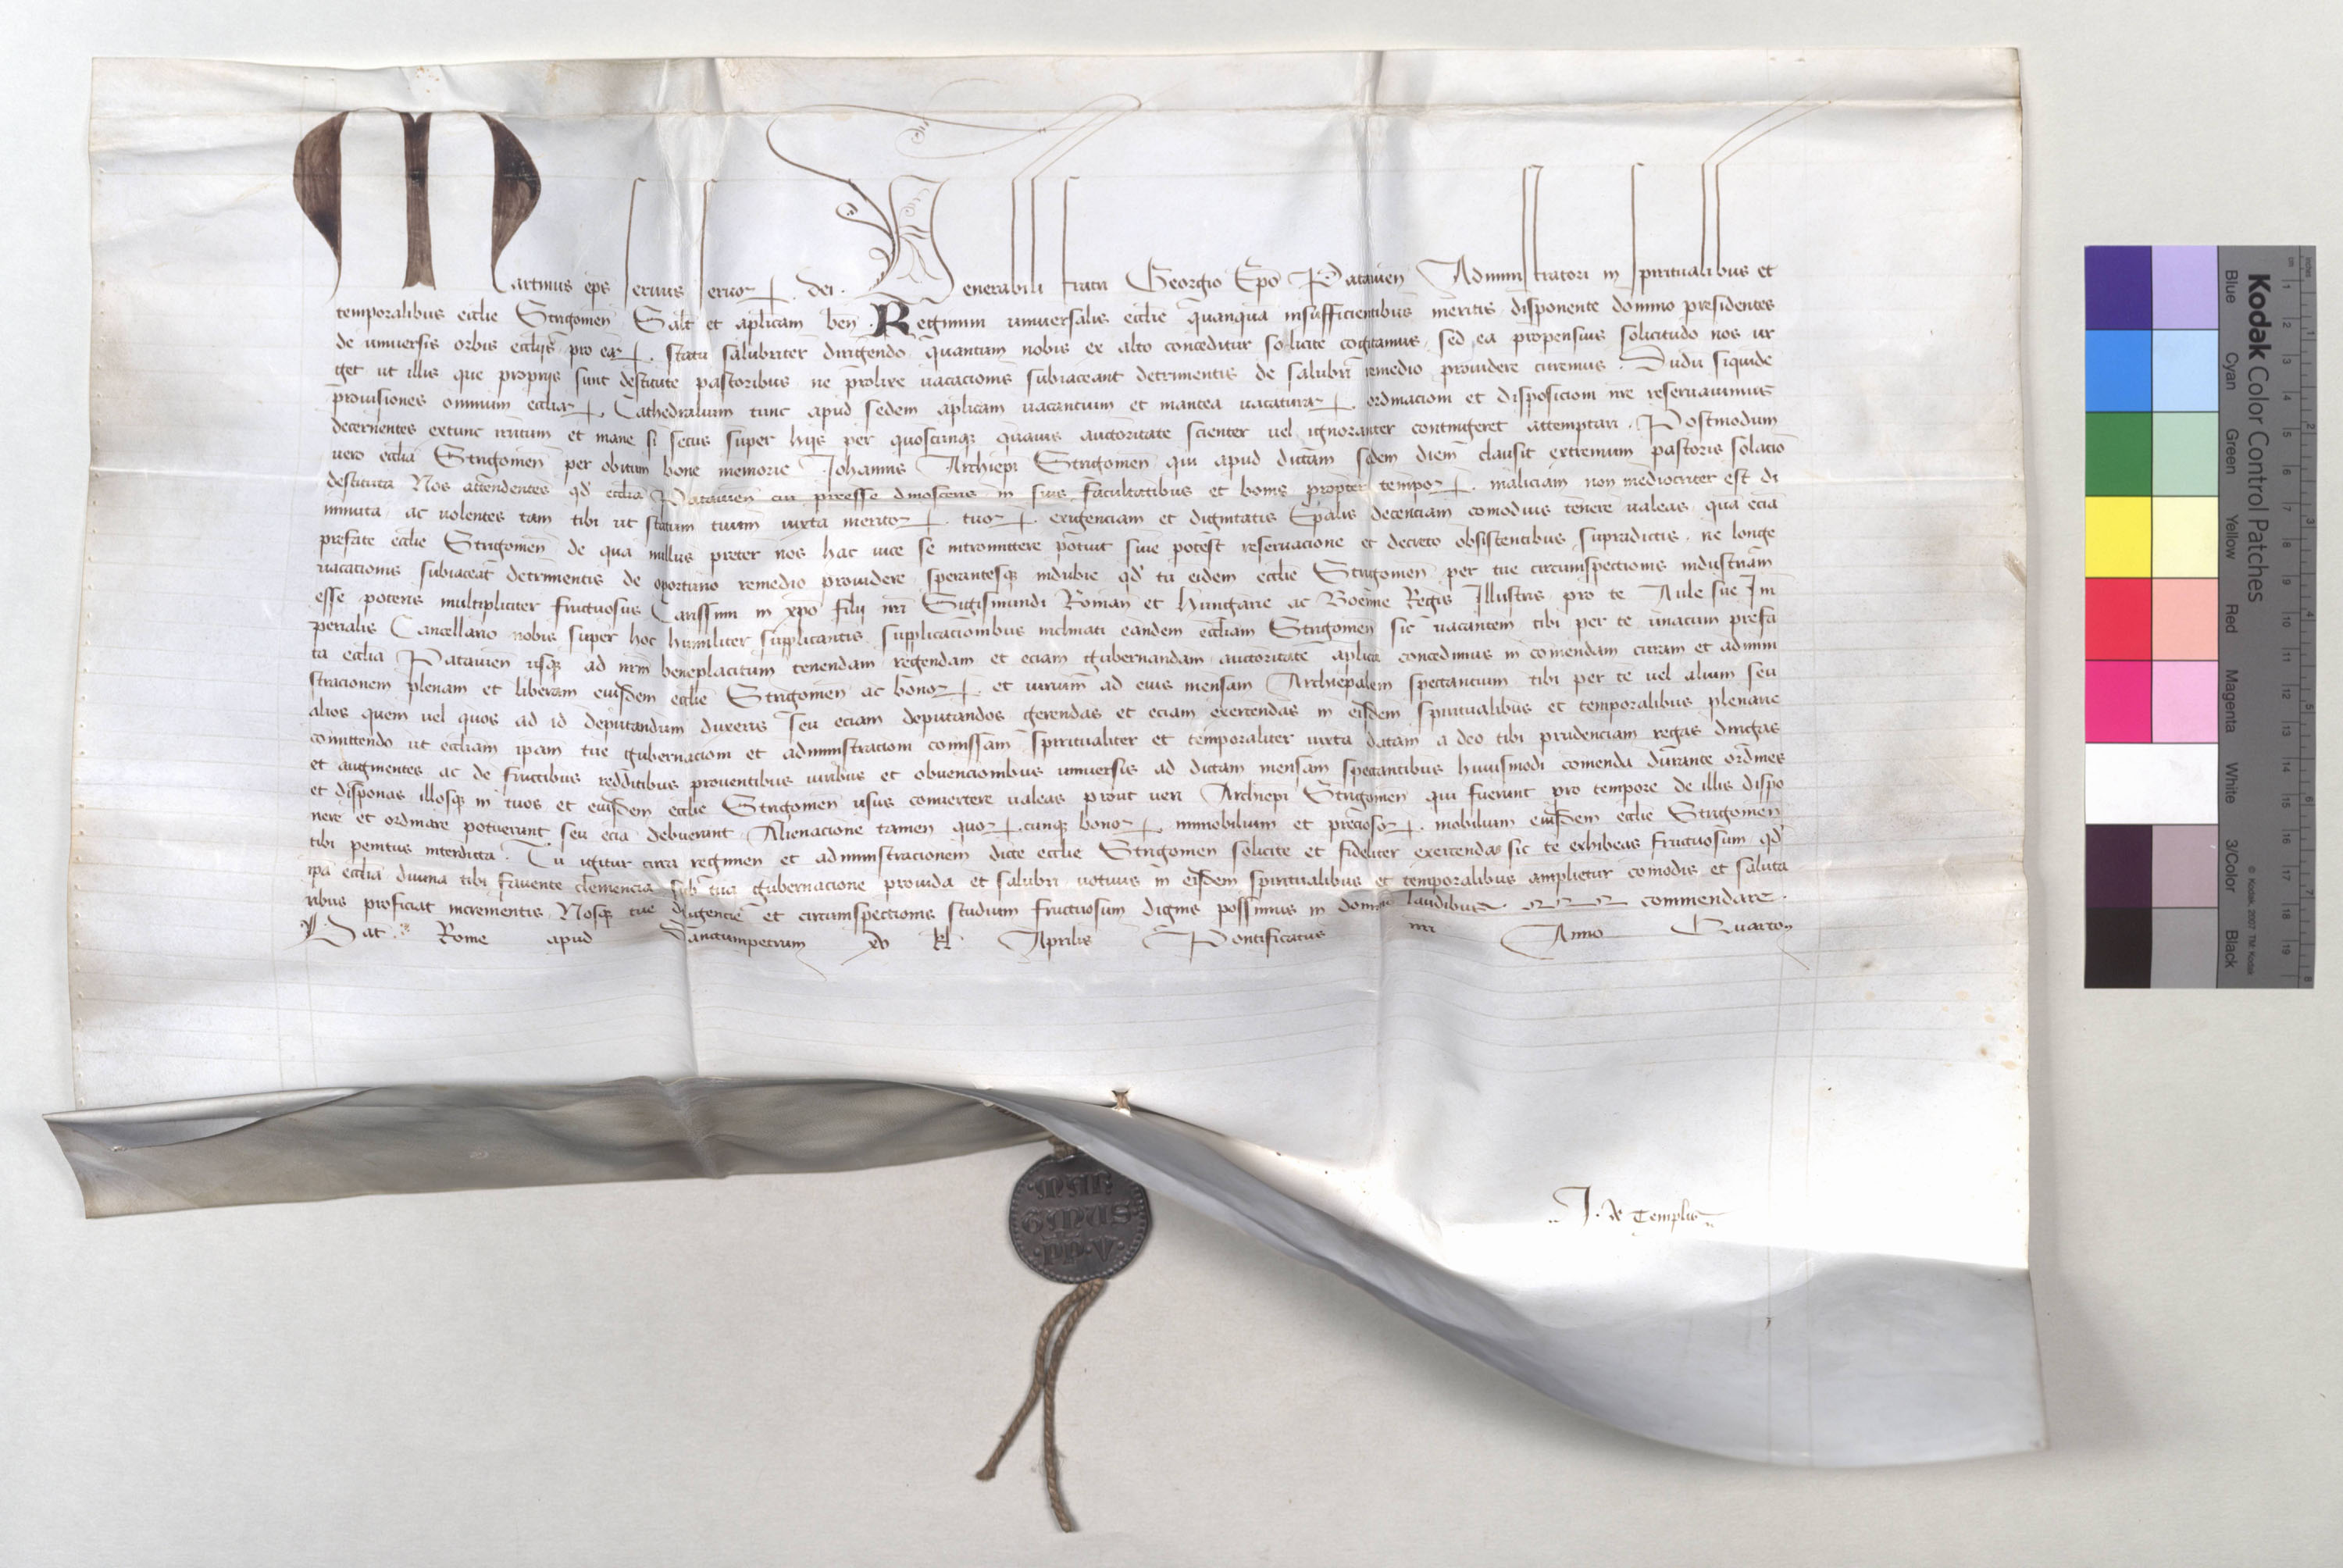 Martinus eps seruus seruoꝝ dei. Venerabili fratri Georgio Epo Patauien Administratori in spiritualibus et
temporalibus ecclie Strigonien Salt et aplicam ben. Regimini uniuersalis ecclie quanqua insufficientibus meritis disponente domino presidentes
de uniuersis orbis ecclijs pro eaꝝ statu salubriter dirigendo quantum nobis ex alto conceditur solicite cogitamus sed ea propensius solicitudo nos ur
get ut illis que proprijs sunt destitute pastoribus ne prolixe uacacionis subiaceant detrimentis de salubri remedio prouidere curemus. Dudu siquide
prouisiones omnium eccliaꝝ Cathedralium tunc apud sedem aplicam uacantium et inantea uacaturaꝝ ordinacioni et disposicioni nre reseruauimus
decernentes extunc irritum et inane si secus super hijs per quoscunqꝫ quauis auctoritate scienter uel ignoranter contingeret attemptari. Postmodum
uero ecclia Strigonien per obitum bone memorie Johannis Archiepi Strigonien qui apud dictam sedem diem clausit extremum pastoris solacio
destituta Nos attendentes qd ecclia Patauien cui preesse dinosceris in suis facultatibus et bonis propter tempoꝝ maliciam non mediocriter est di
minuta ac uolentes tam tibi ut statum tuum iuxta meritoꝝ tuoꝝ exigenciam et dignitatis Epalis decenciam comodius tenere ualeas qua ecia
prefate ecclie Strigonien de qua nullus preter nos hac uice se intromittere potuit siue potest reseruacione et decreto obsistentibus supradictis ne longe
uacationis subiaceat detrimentis de oportuno remedio prouidere sperantesqꝫ indubie qd tu eidem ecclie Strigonien per tue circumspectionis industriam
esse poteris multipliciter fructuosus Carissimi in xpo filij nri Sigismundi Roman et Hungarie ac Boemie Regis Illustris pro te Aule sue Im
perialis Cancellario nobis super hoc humiliter supplicantis supplicacionibus inclinati eandem eccliam Strigonien sic uacantem tibi per te unacum prefa
ta ecclia Patauien usqꝫ ad nrm beneplacitum tenendam regendam et eciam gubernandam auctoritate aplica concedimus in comendam curam et admini
stracionem plenam et liberam eiusdem ecclie Strigonien ac bonoꝝ et iurium ad eius mensam Archiepalem spectantium tibi per te uel alium seu
alios quem uel quos ad id deputandum duxeris seu eciam deputandos gerendas et eciam exercendas in eisdem spiritualibus et temporalibus plenarie
comittendo ut eccliam ipam tue gubernacioni et administracioni comissam spiritualiter et temporaliter iuxta datam a deo tibi prudenciam regas dirigas
et augmentes ac de fructibus redditibus prouentibus iuribus et obuencionibus uniuersis ad dictam mensam spectantibus huiusmodi comenda durante ordines
et disponas illosqꝫ in tuos et eiusdem ecclie Strigonien usus conuertere ualeas prout ueri Archiepi Strigonien qui fuerunt pro tempore de illis dispo
nere et ordinare potuerunt seu ecia debuerunt Alienacione tamen quoꝝcunqꝫ bonoꝝ immobilium et preciosoꝝ mobilium eiusdem ecclie Strigonien
tibi penitus interdicta. Tu igitur circa regimen et administracionem dicte ecclie Strigonien solicite et fideliter exercendas sic te exhibeas fructuosum qd
ipa ecclia diuina tibi fauente clemencia sub tua gubernacione prouida et salubri uotiuis in eisdem spiritualibus et temporalibus amplietur comodis et saluta
ribus proficiat incrementis Nosqꝫ tue diligencie et circumspectionis studium fructuosum dignis possimus in domino laudibus commendare.
Dat Rome apud Sanctumpetrum xv kl Aprilis Pontificatus nri Anno Quarto
J. de Templis
MAR
TINUS
PP V
Kodak Color Control Patches
Blue Cyan Green Yellow Red Magenta White 3/Color Black
© Kodak, 2007 TM: Kodak
cm 1 2 3 4 5 6 7 8 9 10 11 12 13 14 15 16 17 18 19
inches 1 2 3 4 5 6 7 8